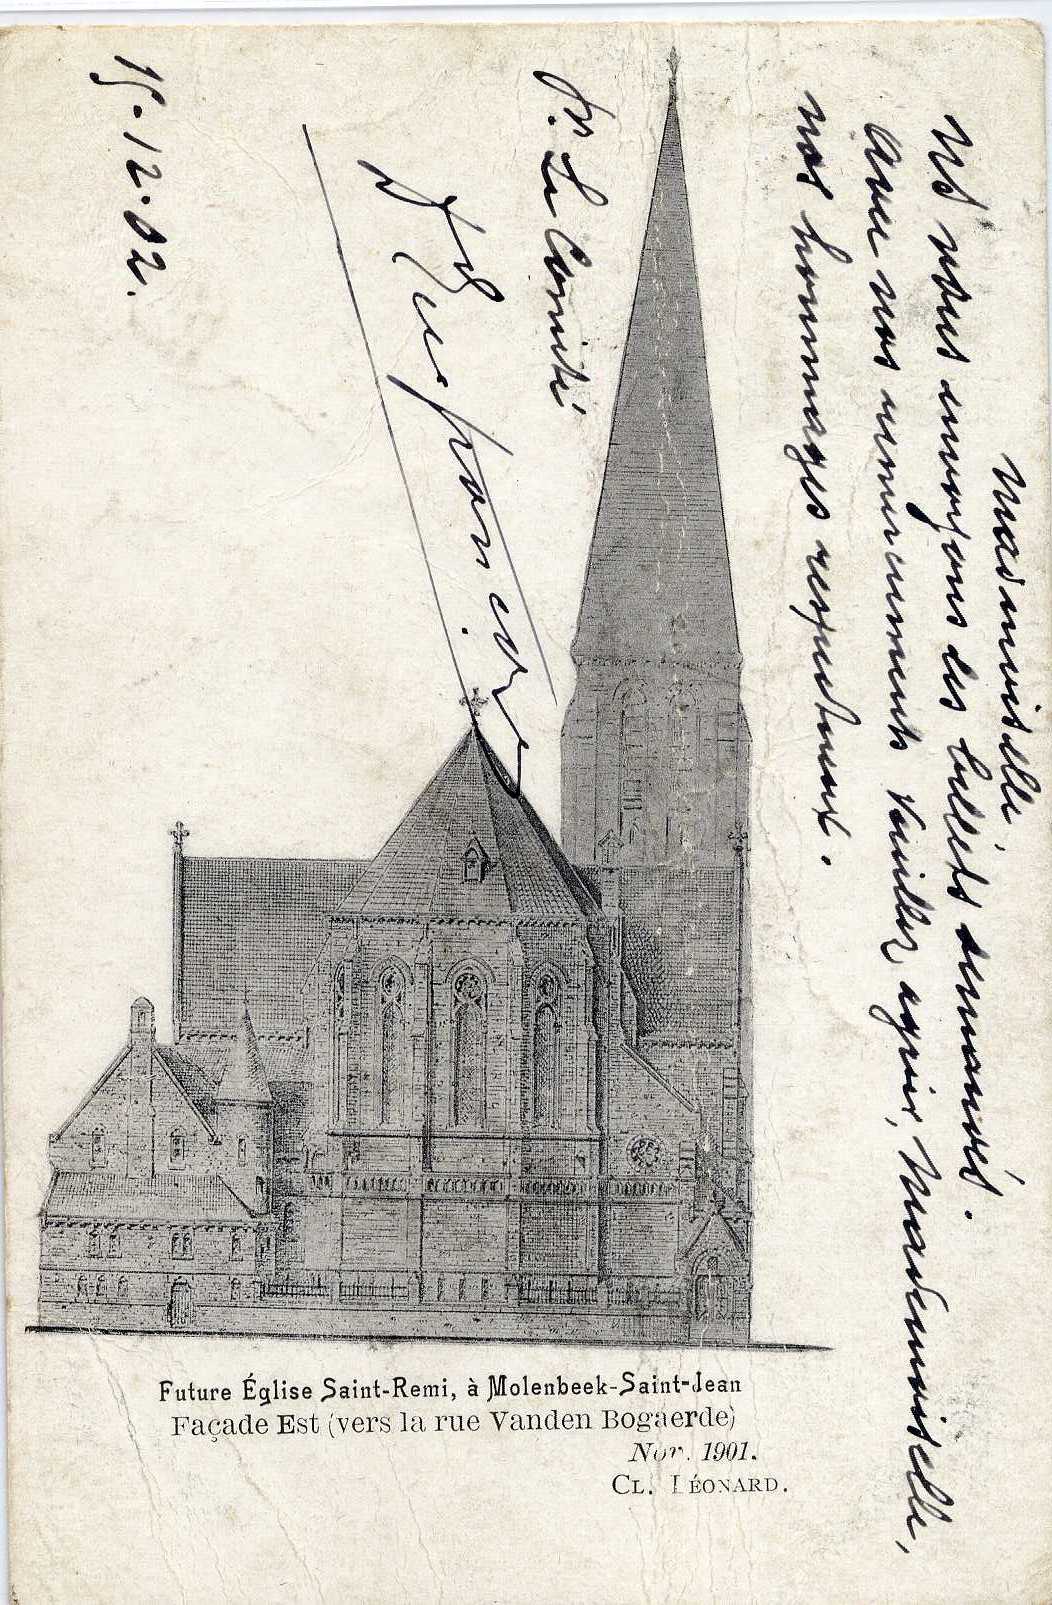 Mademoiselle,
Ns vous envoyons les billets demandés.
Avec nos remerciements veuillez agréer, Mademoiselle,
nos hommages respectueux.
Pr. Le Comité
15-12-02.
Future Église Saint-Remi, à Molenbeek-Saint-Jean
Façade Est (vers la rue Vanden Bogaerde)
Nov. 1901.
CL. LÉONARD.